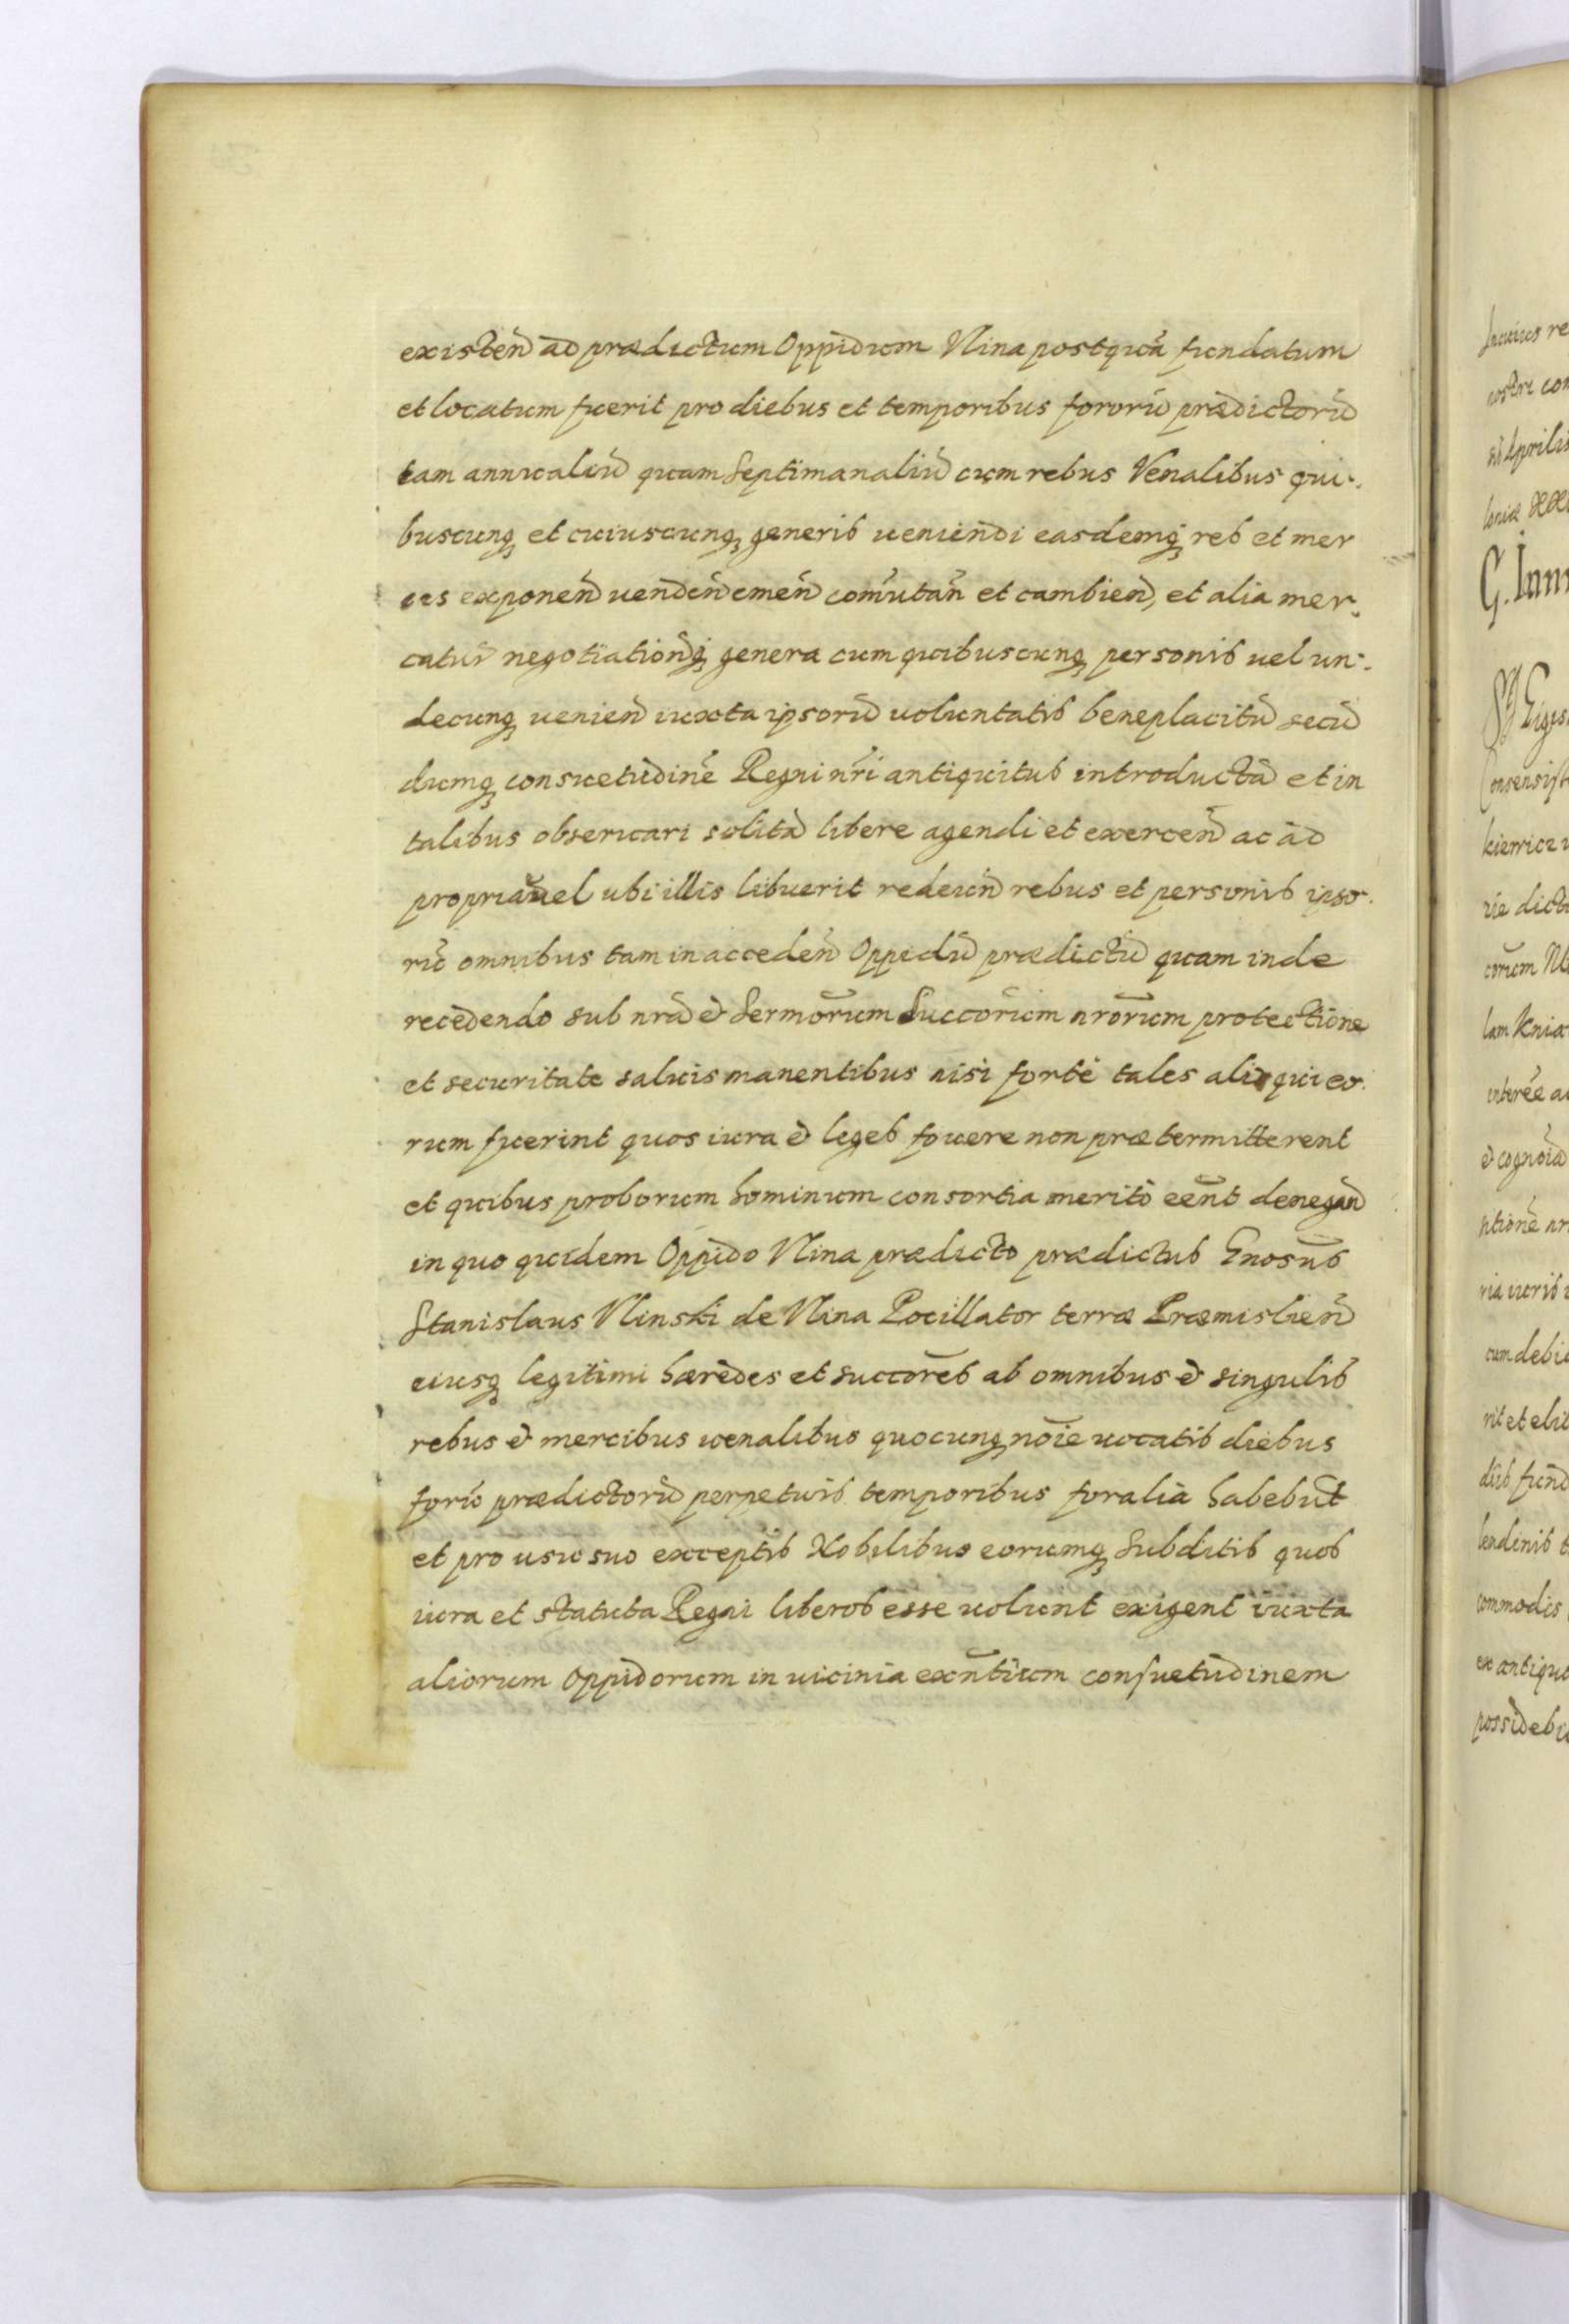 existen̄ ad prædictum Oppidum Vlina postquā fundatum
et locatum fuerit pro diebus et temporibus fororū prædictorū
tam annualiū quam Septimanaliū cum rebus Venalibus qui-
buscunq; et cuiuscunq; generis ueniendi easdemq; res et mer
ces exponen̄ venden̄ emen̄ com̄utan̄ et cambien̄, et alia mer-
catur̄ negotiation̄q; genera cum quibuscunq; personis uel un-
decunq; venien̄ iuxta ipsorū uoluntatis beneplacitū secū
dumq; consuetudinē Regni nr̄i antiquitus introductā et in
talibus obseruari solitā libere agendi et exercen̄ ac ad
propriā uel ubi illis libuerit redeun̄ rebus et personis ipso-
rū omnibus tam in acceden̄ Oppidū prædictū quam inde
recedendo sub nr̄a & Sermōrum Succōrum nrōrum protectione
et securitate saluis manentibus nisi forte tales aliqui eo-
rum fuerint quos iura & leges fouere non prætermitterent
et quibus proborum hominum consortia merito eēnt denegan̄
in quo quidem Oppido Vlina prædicto prædictus Gnosus̄
Stanislaus Vlinski de Vlina Pocillator terræ Præmislien̄
eiusq; legitimi hæredes et succōres ab omnibus & singulis
rebus & mercibus uenalibus quocunq; nōie uocatis diebus
forū prædictorū perpetuis temporibus foralia habebūt
et pro usu suo exceptis Nobilibus eorumq; Subditis quos
iura et statuta Regni liberos esse uolunt exigent iuxta
aliorum oppidorum in uicinia exn̄tium consuetudinem
G. Inn